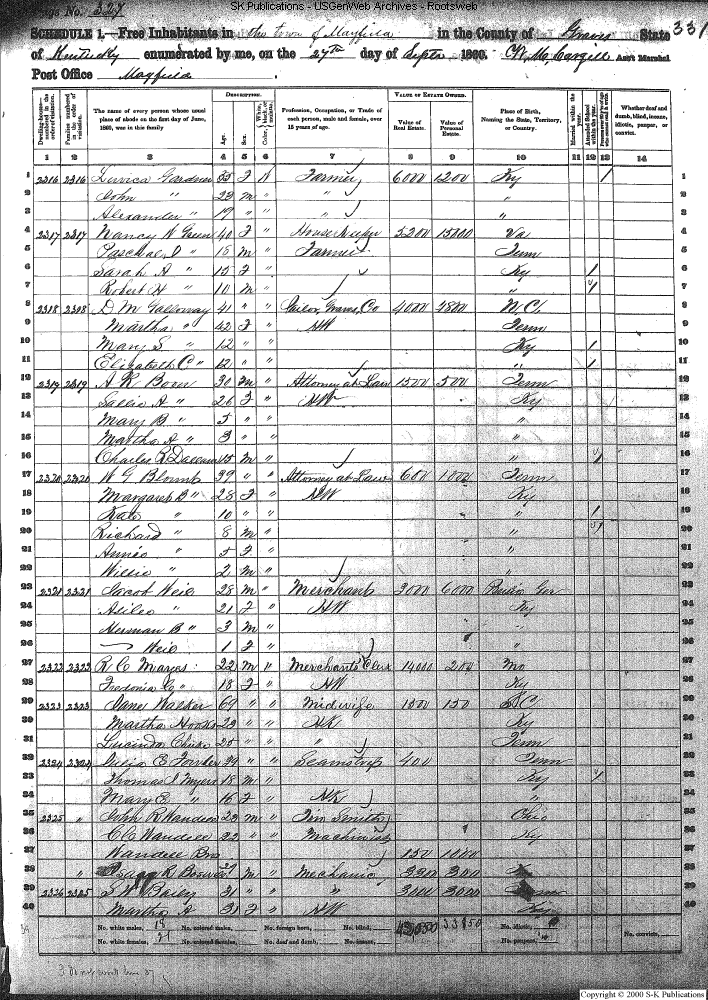 SK Publications - USGenWeb Archives - Rootsweb
Page No. 327
331
SCHEDULE 1.—Free Inhabitants in the town of Mayfield in the County of Graves State
of Kentucky enumerated by me, on the 27th day of Septr 1860. C. M. Cargill Ass't Marshal
Post Office Mayfield
Dwelling-houses—numbered in the order of visitation.
Families numbered in the order of visitation.
The name of every person whose usual place of abode on the first day of June, 1860, was in this family
DESCRIPTION.
Age.
Sex.
Color, White, black, or mulatto.
Profession, Occupation, or Trade of each person, male and female, over 15 years of age.
VALUE OF ESTATE OWNED.
Value of Real Estate.
Value of Personal Estate.
Place of Birth, Naming the State, Territory, or Country.
Married within the year.
Attended School within the year.
Whether deaf and dumb, blind, insane, idiotic, pauper, or convict.
1 2 3 4 5 6 7 8 9 10 11 12 13 14
1 2316 2316 Gardner 55 F W Farmer 6000 1200 Ky / 1
2 John " 23 m " " " 2
3 Alexander " 19 " " " " 3
4 2317 2317 Nancy W Green 40 F " House Keeper 5200 15800 Va 4
5 Paschal " 18 m " Farmer Tenn 5
6 Sarah A " 15 F " Ky / 6
7 Robert H " 10 m " " / 7
8 2318 2318 D. M. Galloway 41 " " Graves Co 4000 4800 N C, 8
9 Martha " 42 F " HW Tenn 9
10 Mary S " 12 " " Ky / 10
11 Elizabeth C " 12 " " " / 11
12 2319 2319 A R Boon 30 m " Attorney at Law 1500 500 Tenn 12
13 Sallie A " 26 F " HW Ky 13
14 Mary B " 5 " " " 14
15 Martha A " 3 " " " 15
16 Charles R 15 m " " / 16
17 2320 2320 W G Blount 39 " " Attorney at Law 600 1000 Tenn 17
18 Margaret B " 28 F " HW Ky 18
19 Kate " 10 " " " / 19
20 Richard " 8 m " " / 20
21 Annie " 5 F " " 21
22 Willie " 2 m " " 22
23 2321 2321 Jacob Weil 28 m " Merchant 3000 6000 Ger 23
24 " 21 F " HW Ky 24
25 Herman B " 3 m " " 25
26 — Weil 1 F " " 26
27 2322 2322 R C Mayes 22 m " Merchants Clerk 14000 200 Mo 27
28 Fredonia C " 18 F " HW Ky 28
29 2323 2323 Jane Walker 69 " " Midwife 1500 150 S C 29
30 Martha Hooks 29 " " HK Ky 30
31 Lucinda 25 " " " Tenn 31
32 2324 2324 Julia E 39 " " Seamstress 400 Tenn 32
33 Thomas J Myers 18 m " Ky / 33
34 Mary E " 16 F " HK " 34
35 2325 " John R Wandell 23 m " Tin Smith Ohio 35
36 C C Wandell 22 " " Machinist Ky 36
37 Wandell Bro 150 1000 37
38 " R 29 m " Mechanic 3300 300 38
39 2326 2325 S W Bailey 31 " " " 3000 3000 Tenn 39
40 Martha A 31 F " HW Ky 40
No. white males, 18 No. colored males, No. foreign born, No. blind, 33850 No. idiotic, No. convicts,
No. white females, 21 No. colored females, No. deaf and dumb, No. insane, No. paupers,
Copyright © 2000 S-K Publications